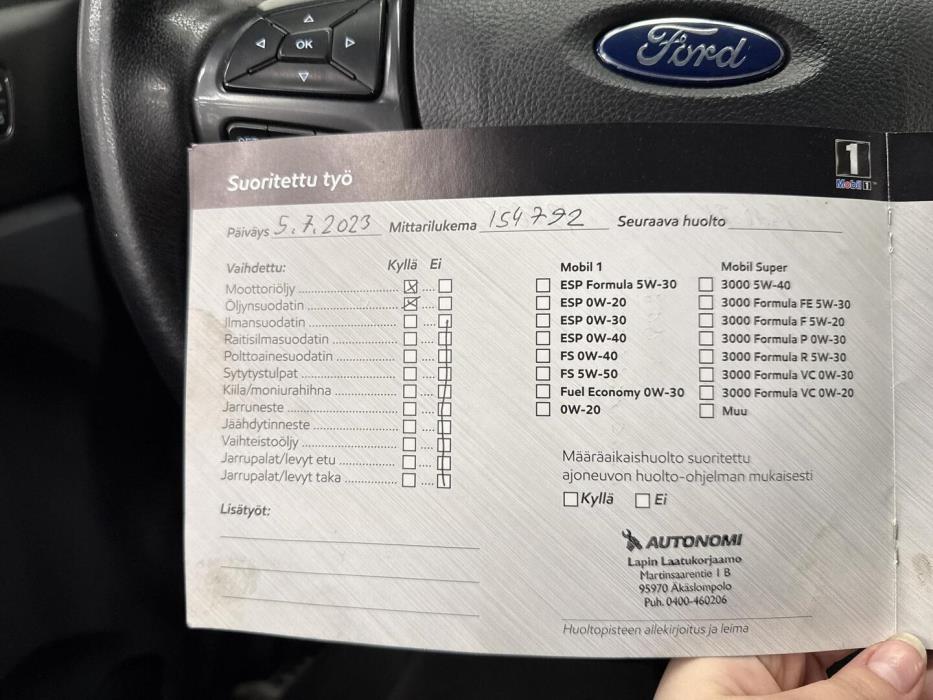 OK
Ford
Suoritettu työ
1
Mobil 1
Päiväys 5.7.2023 Mittarilukema 154792 Seuraava huolto
Vaihdettu: Kyllä Ei
Moottoriöljy
Öljynsuodatin
Ilmansuodatin
Raitisilmasuodatin
Polttoainesuodatin
Sytytystulpat
Kiila/moniurahihna
Jarruneste
Jäähdytinneste
Vaihteistoöljy
Jarrupalat/levyt etu
Jarrupalat/levyt taka
Lisätyöt:
Mobil 1
ESP Formula 5W-30
ESP 0W-20
ESP 0W-30
ESP 0W-40
FS 0W-40
FS 5W-50
Fuel Economy 0W-30
0W-20
Mobil Super
3000 5W-40
3000 Formula FE 5W-30
3000 Formula F 5W-20
3000 Formula P 0W-30
3000 Formula R 5W-30
3000 Formula VC 0W-30
3000 Formula VC 0W-20
Muu
Määräaikaishuolto suoritettu
ajoneuvon huolto-ohjelman mukaisesti
Kyllä Ei
AUTONOMI
Lapin Laatukorjaamo
Martinsaarentie 1 B
95970 Äkäslompolo
Puh. 0400-460206
Huoltopisteen allekirjoitus ja leima